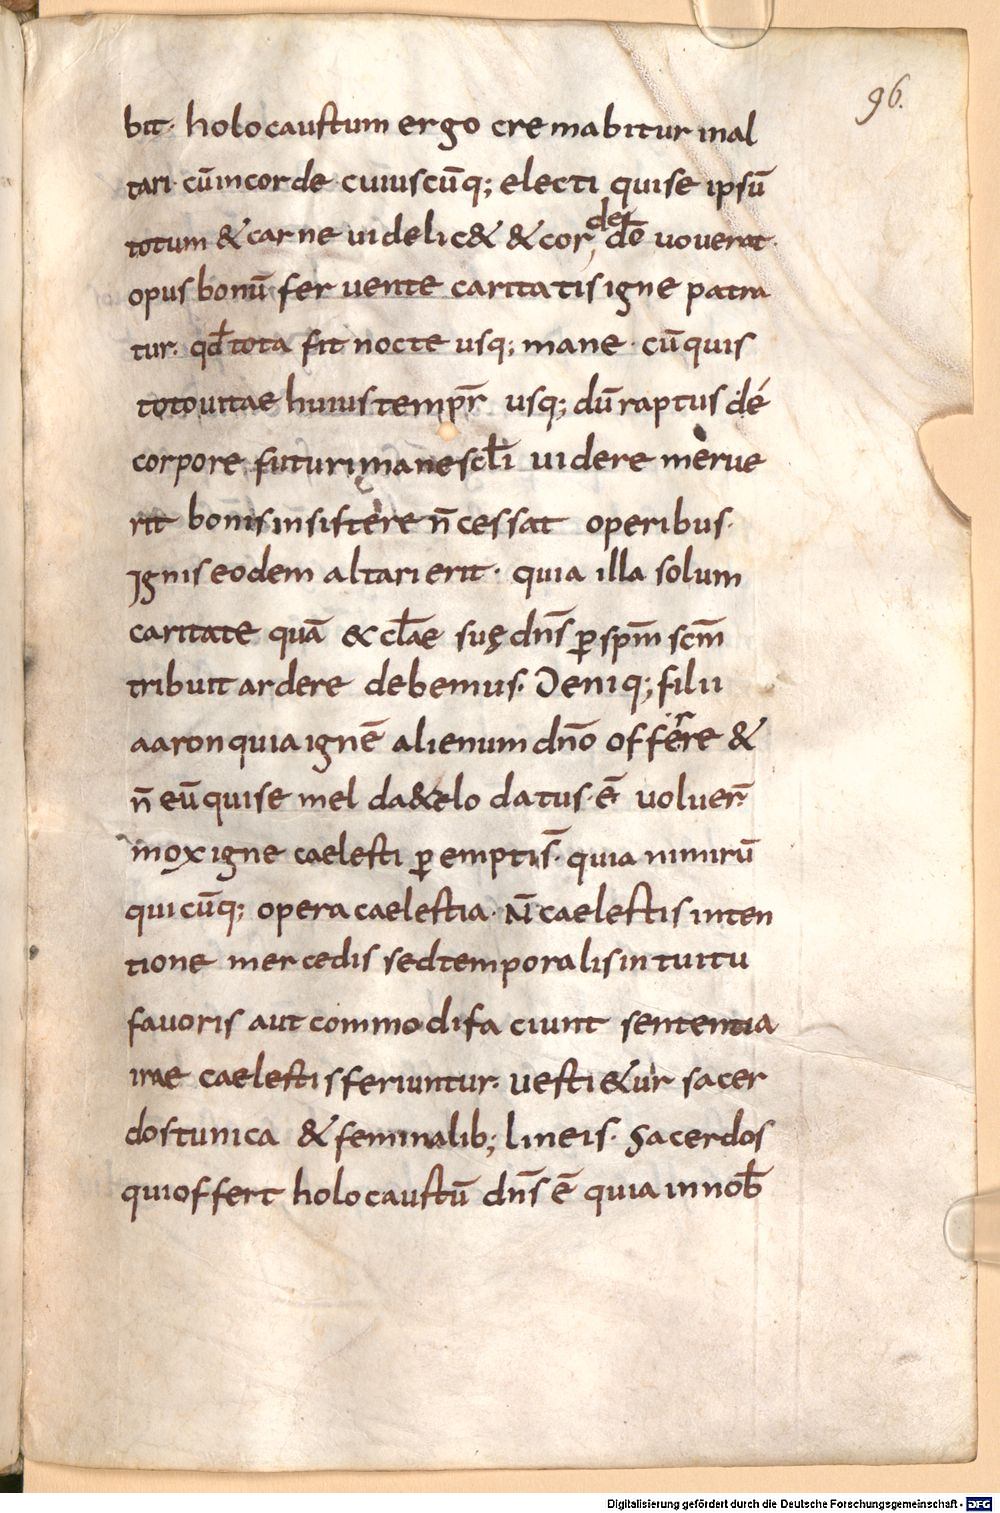 96.
bit· holocaustum ergo cremabitur inal
tari· cū incorde cuiuscūq; electi quise ipsū
totum & carne uidelic& & cor de d̄o uouerat·
opus bonū feruente caritatis igne patra
tur· qđ tota fit nocte usq; mane· cū quis
toto uitae huius tempr̄ usq; dū raptus dé
corpore futuri mane scłi uidere merue
rit bonis insistere n̄ cessat operibus·
Ignis eodem altari erit· quia illa solum
caritate quā & cłae suę dn̄s ꝑ spm̄ scm̄
tribuit ardere debemus· Deniq; filii
aaron quia ignē alienum dn̄o offerre &
n̄ eū quise mel da& elo datus· ē· uoluer̄
mox igne caelesti ꝑemptis̄· quia nimirū
quicūq; opera caelestia· n̄ caelestis inten
tione mercedis sed temporalis intuitu
fauoris aut commodi faciunt sententia
irae caelestis feriuntur· uesti&ur sacer
dos tunica & feminalib; lineis· Sacerdos
qui offert holocaustū dn̄s ē quia in nob̄
Digitalisierung gefördert durch die Deutsche Forschungsgemeinschaft - DFG